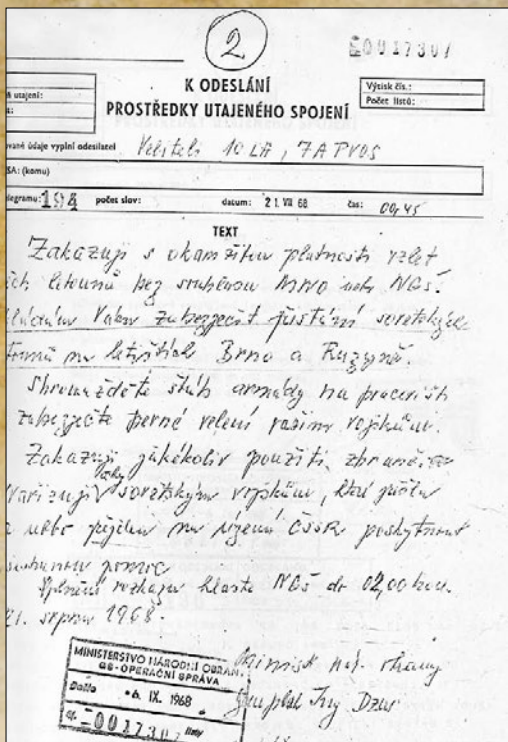 2
0017307
K ODESLÁNÍ
PROSTŘEDKY UTAJENÉHO SPOJENÍ
utajení:
Výtisk čís.:
Počet listů:
vané údaje vyplní odesílatel Veliteli 10 LA, 7A PVOS
SA: (komu)
legramu: 194 počet slov: datum: 21. VII 68 čas: 00,45
TEXT
Zakazuji s okamžitou platností vzlet
letounů bez souhlasu MNO nebo NGŠ.
Vám zabezpečit přistání sovětských
na letištích Brno a Ruzyně.
Shromážděte štáb armády na pracovišti
zabezpečte pevné velení vašim vojskům.
Zakazuji jakékoliv použití zbraně
sovětským vojskům,
nebo přijdou na území ČSSR poskytnout
pomoc
Splnění rozkazu hlaste NGŠ do 02,00 hod.
21. srpna 1968
Ministr nár. obrany
genpluk Dzúr
MINISTERSTVO NÁRODNÍ OBRAN.
GŠ-OPERAČNÍ SPRÁVA
Došlo -6. IX. 1968
čj. 0017307 listy